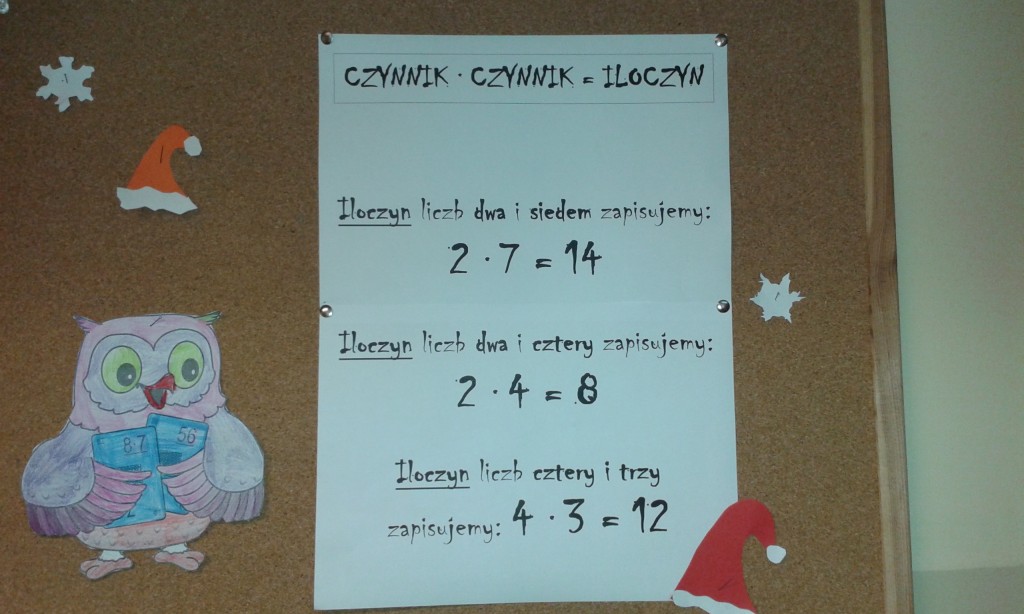 CZYNNIK · CZYNNIK = ILOCZYN
Iloczyn liczb dwa i siedem zapisujemy:
2 · 7 = 14
Iloczyn liczb dwa i cztery zapisujemy:
2 · 4 = 8
Iloczyn liczb cztery i trzy
zapisujemy: 4 · 3 = 12
8·7
56